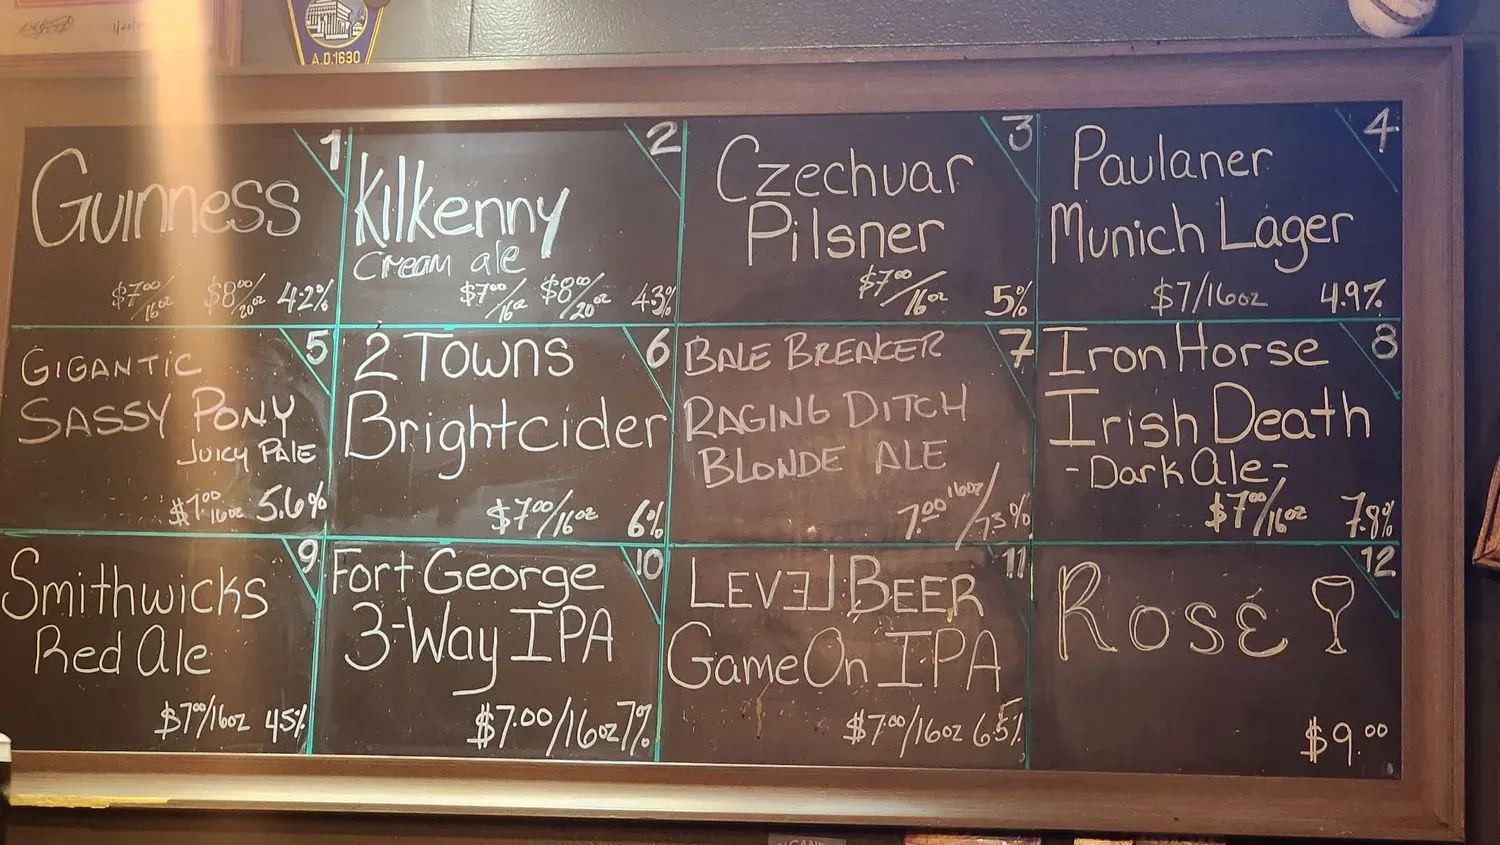 A.D.1630
1
Guinness
$7⁰⁰/16oz $8⁰⁰/20oz 4.2%
2
Kilkenny
Cream ale
$7⁰⁰/16oz $8⁰⁰/20oz 4.3%
3
Czechvar
Pilsner
$7⁰⁰/16oz 5%
4
Paulaner
Munich Lager
$7/16oz 4.9%
5
GIGANTIC
SASSY PONY
JUICY PALE
$7⁰⁰ 16oz 5.6%
6
2 Towns
Brightcider
$7⁰⁰/16oz 6%
7
BALE BREAKER
RAGING DITCH
BLONDE ALE
7.⁰⁰ 16oz/
8
Iron Horse
Irish Death
-Dark Ale-
$7⁰⁰/16oz 7.8%
9
Smithwicks
Red Ale
$7⁰⁰/16oz 4.5%
10
Fort George
3-Way IPA
$7.00/16oz 7%
11
LEVƎL BEER
GameOn IPA
$7.⁰⁰/16oz 6.5%
12
Rosé
$9.⁰⁰